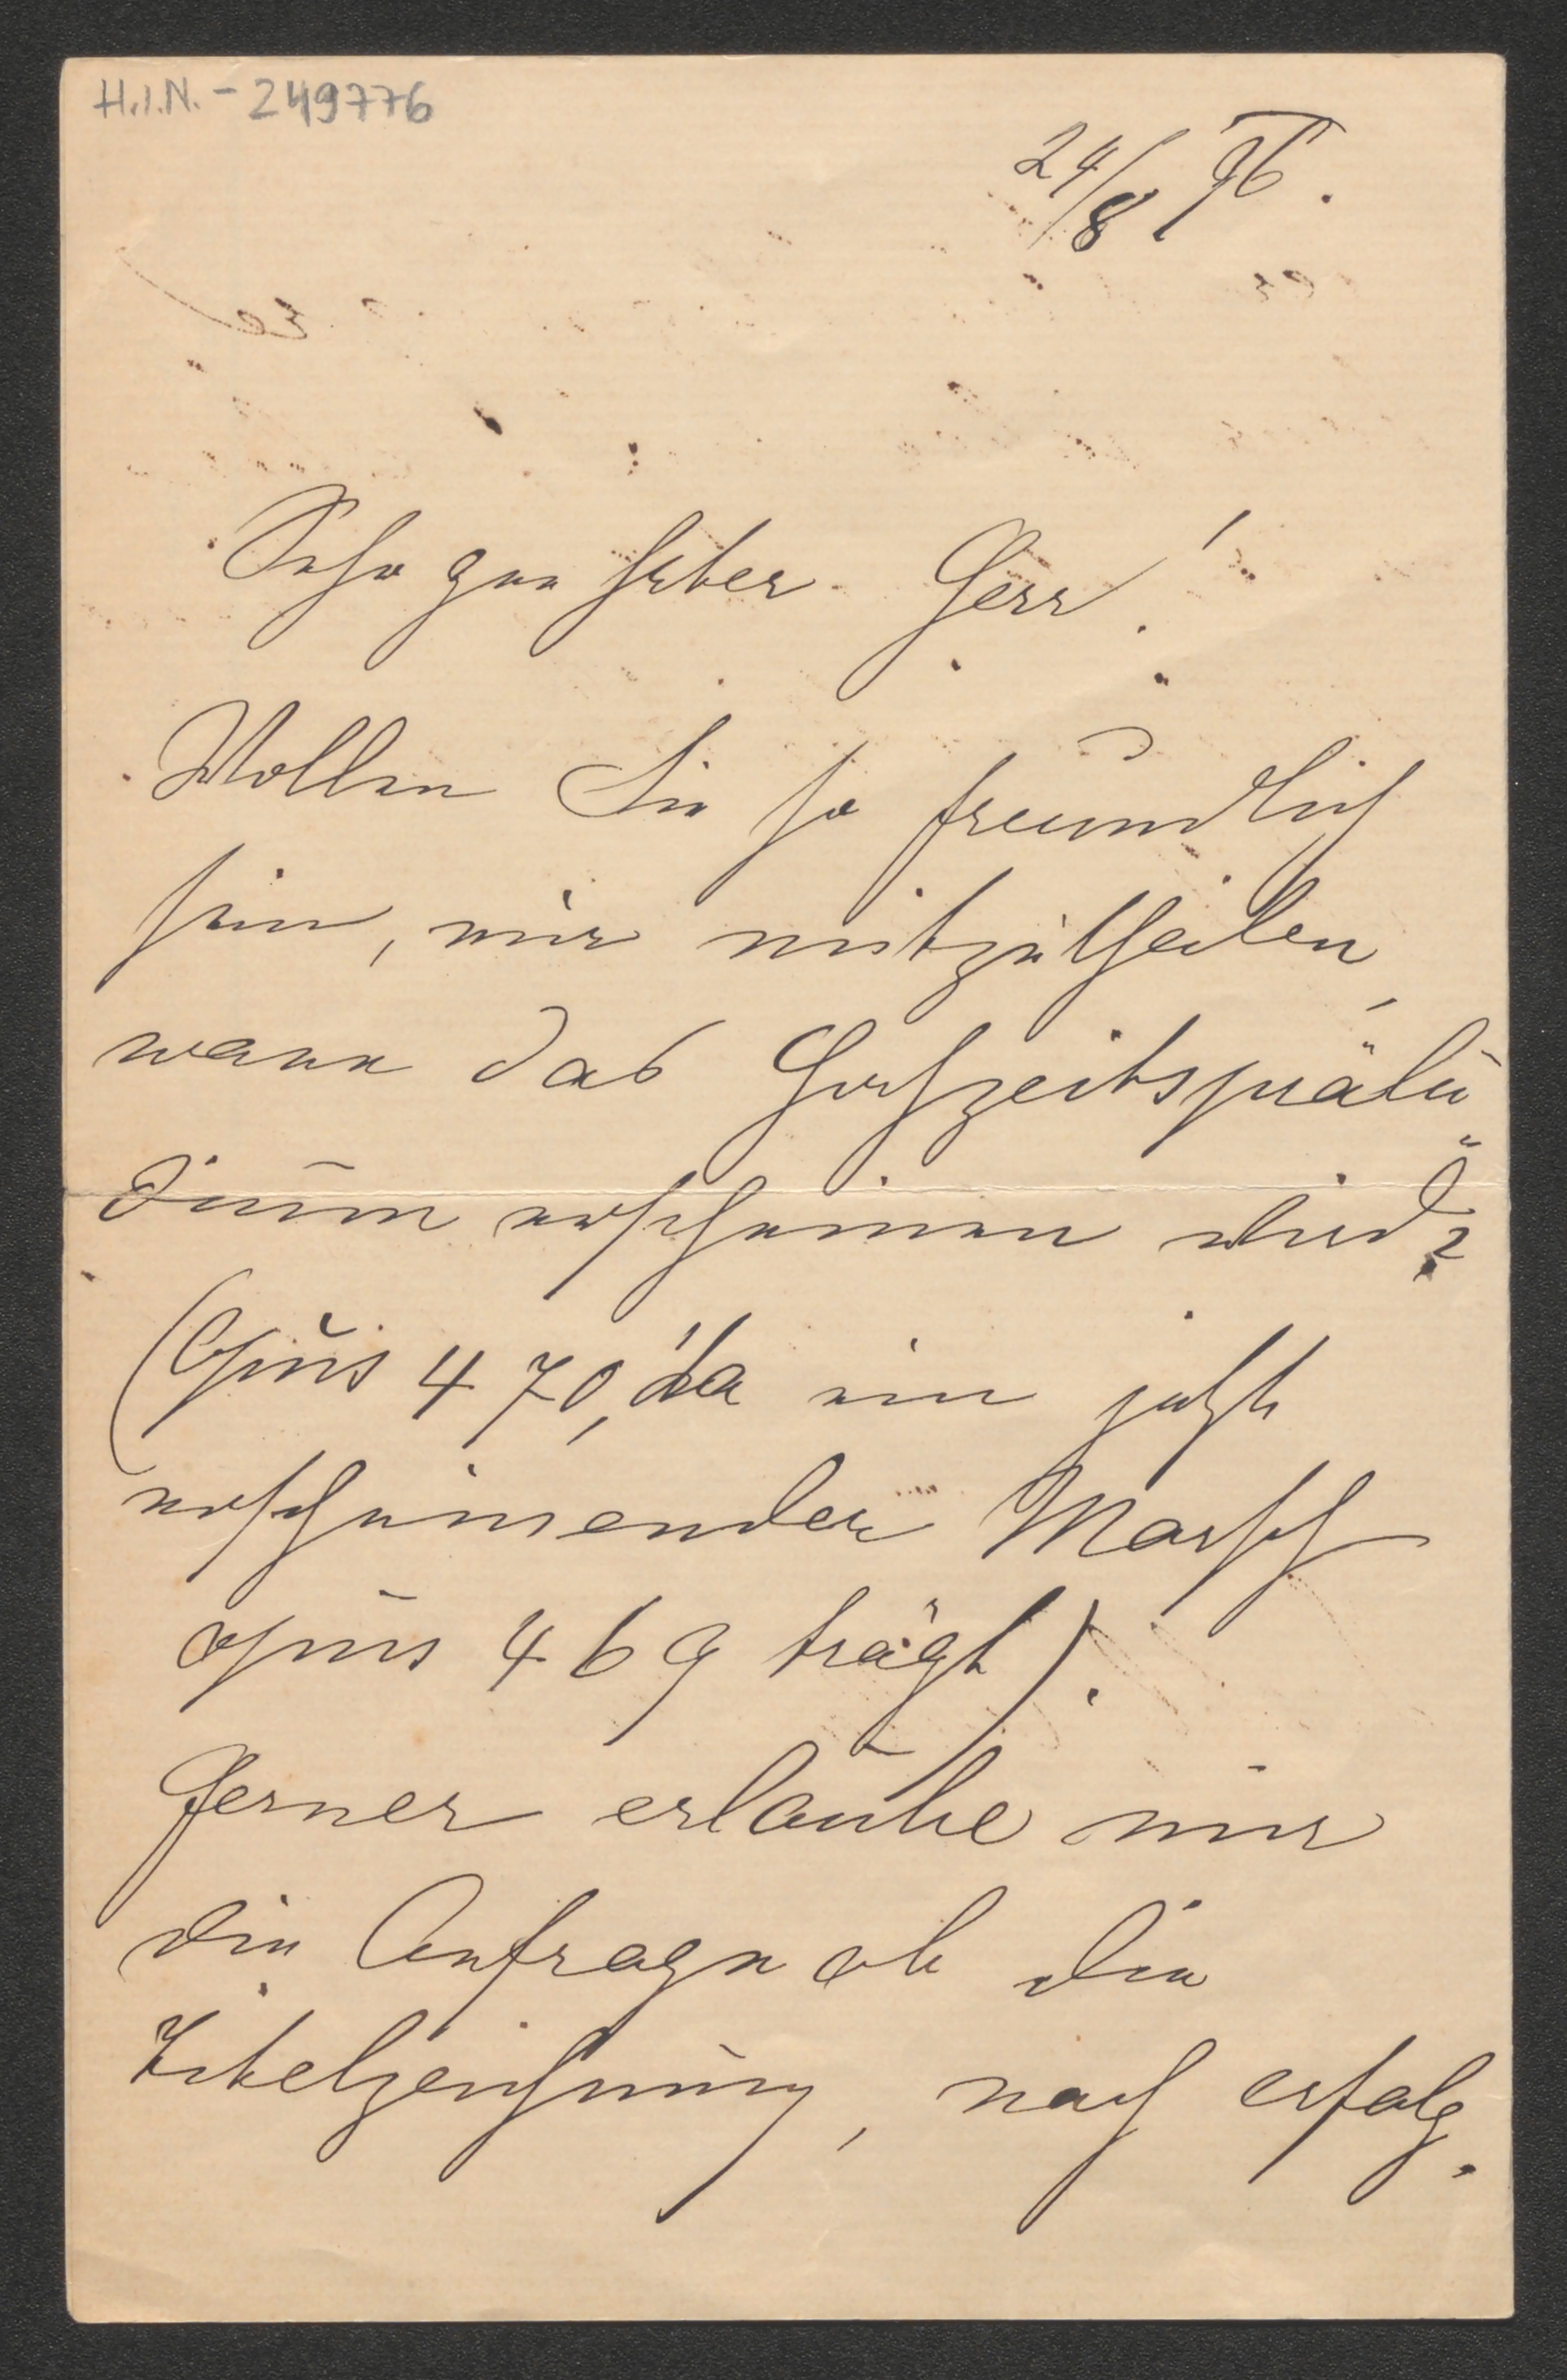 H.I.N.-249776
24/8 96.
Sehr geehrter Herr!
Wollen Sie so freundlich
sein, mir mitzutheilen,
wann das Hochzeitsprälu
dium erscheinen wird?
(Opus 470, da ein jetzt
erscheinender Marsch
opus 469 trägt).
Ferner erlaube mir
die Anfrage ob die
Titelzeichnung, nach erfolg.